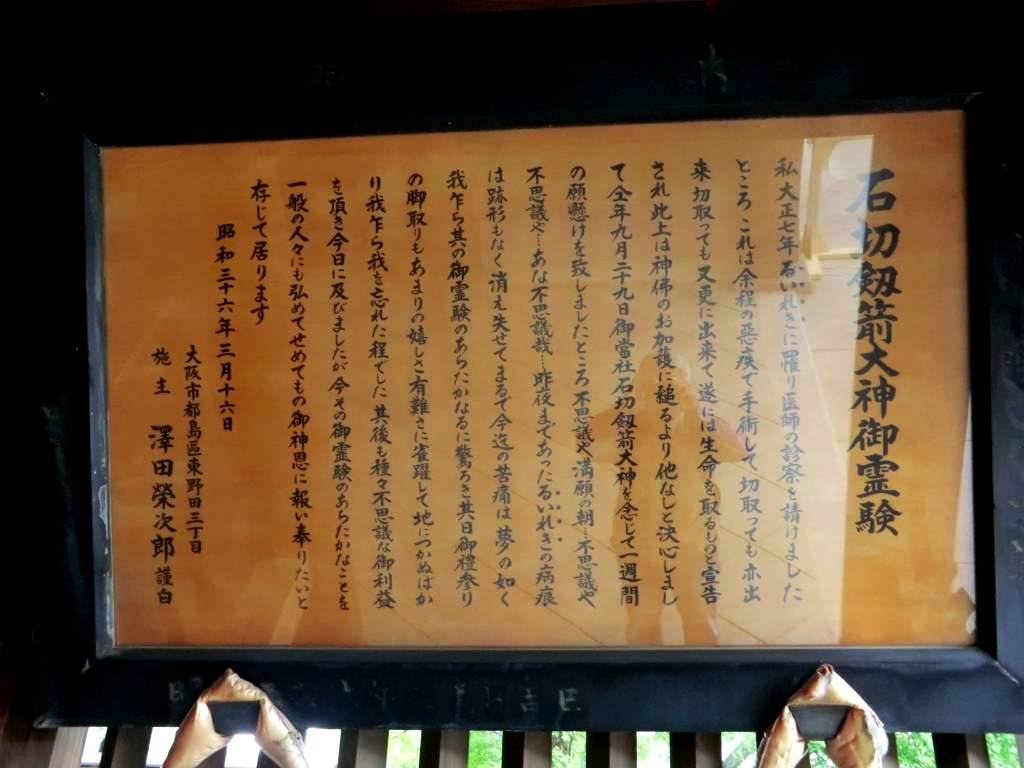 石切劔箭大神御霊験
私大正七年るいれきに罹り医師の診察を請けました
ところ これは余程の惡疾で手術して切取っても亦出
来 切取っても又更に出来て遂には生命を取るものと宣告
され此上は神佛のお加護に縋るより他なしと決心しまし
て仝年九月二十九日御當社石切劔箭大神を念じて一週間
の願懸けを致しましたところ不思議や満願の朝…不思議や
不思議や…あな不思議哉…昨夜まであったるいれきの病痕
は跡形もなく消え失せてまるで今迄の苦痛は 夢の如く
我乍ら其の御霊験のあらたかなるに驚ろき其日御禮参り
の脚取りもあまりの嬉しさ有難さに雀躍して地につかぬばか
り我乍ら我を忘れた程でした 其後も種々不思議な御利益
を頂き今日に及びましたが今その御霊験のあらたかなことを
一般の人々にも弘めてせめてもの御神恩に報い奉りたいと
存じて居ります
昭和三十六年三月十六日
大阪市都島區東野田三丁目
施主 澤田榮次郎 謹白